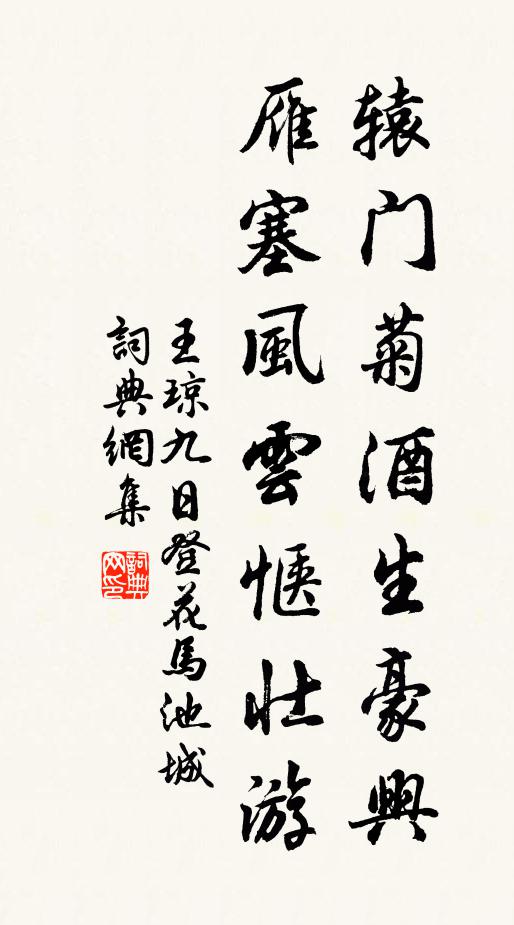 辕门菊酒生豪興
雁塞風雲惬壮游
王琼九日登花馬池城
詞典網集
詞典网印